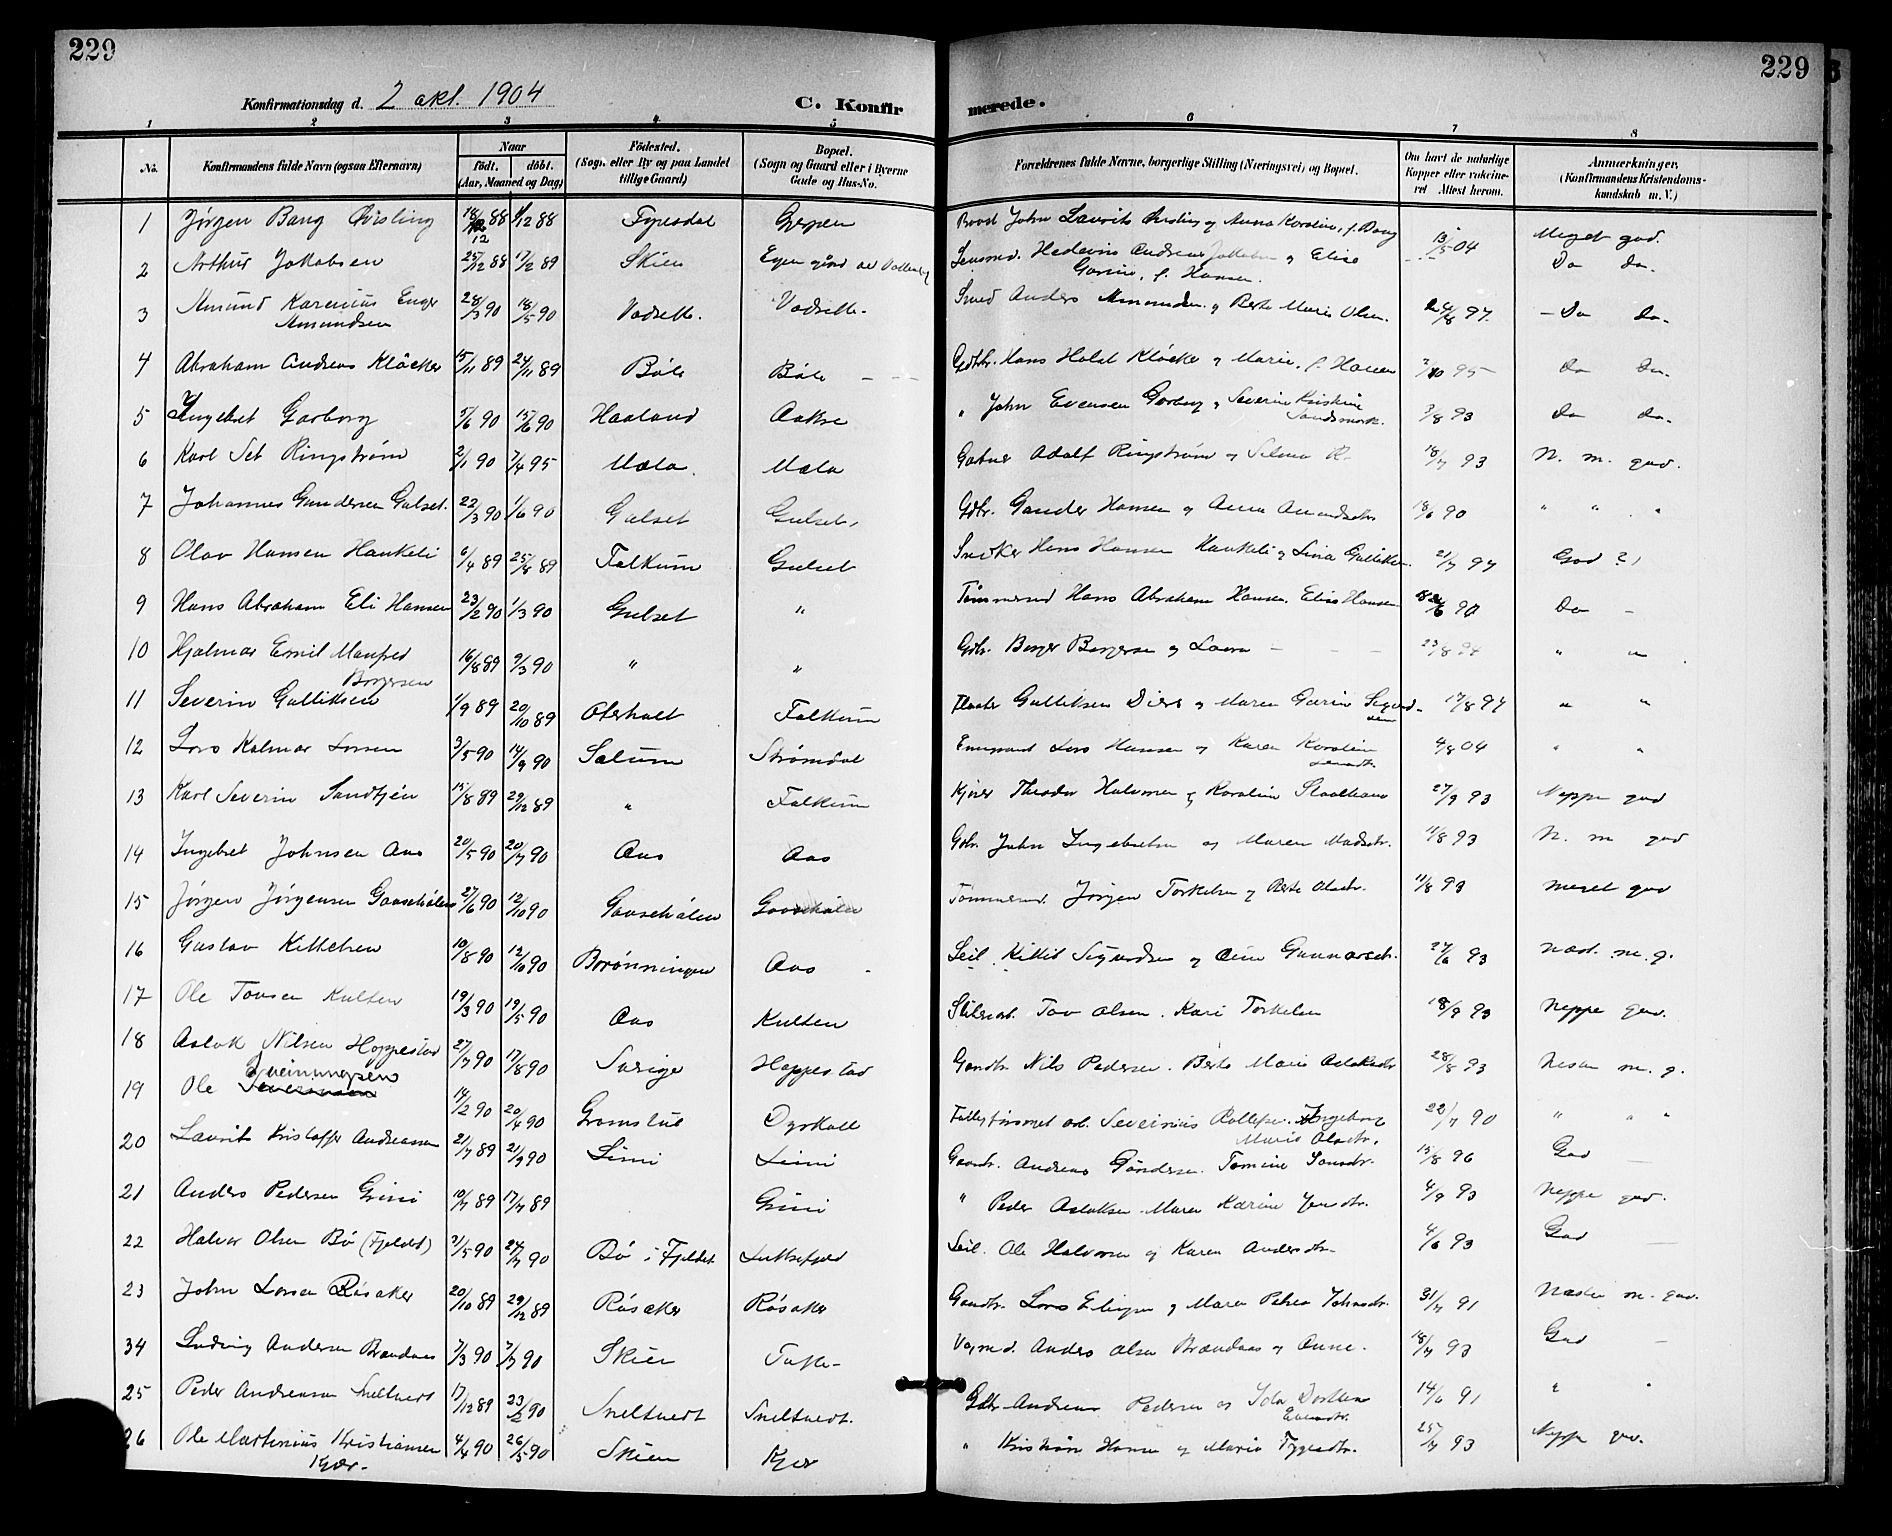 229
229
Konfirmationsdag d. 2 okt. 1904
C. Konfir
merede.
1 2 3 4 5 6 7 8
No.
Konfirmandens fulde Navn (ogsaa Efternavn)
Naar
födt. döbt.
(Aar, Maaned og Dag)
Födested.
(Sogn, eller By og paa Landet
tillige Gaard)
Bopæl.
(Sogn og Gaard eller i Byerne
Gade og Hus-No.
Forældrenes fulde Navne, borgerlige Stilling (Næringsvei) og Bopæl.
Om havt de naturlige
Kopper eller vaccine-
ret Attest herom.
Anmærkninger.
(Konfirmandens Kristendoms-
kundskab m. V.)
1 Jørgen Bang Qvisling 18/12 88 Fyresdal Gjerpen John Laurits Qvisling og Anna Karoline, f. Bang 13/5 04 Meget god.
2 Arthur Jakobsen 25/12 88 17/2 89 Skien Egen gård Andreas Jakobsen og Elise
Hansen. Do do.
3 Amund Karenius Enger
Amundsen 28/3 90 18/5 90 Vadrette. Vadrette. Smed Anders Amundsen og Berte Marie Olsen. 97. Do do.
4 Abraham Andreas Kløcker 15/11 89 24/11 89 Böle Böle Gdbr. Hans Holst Kløcker og Marie, f. Hansen 95 Do Do.
5 Ingebret Garborg 5/6 90 15/6 90 Haaland " John Evensen Garborg og Severine Kristine
3/8 93 do do.
6 Karl Set Ringstrøm 2/1 90 7/4 95 Mæla. Mæla Adolf Ringstrøm og Selma R. 18/7 93 N. m. god.
7 Johannes Gundersen Gulset. 22/3 90 1/6 90 Gulset Gulset, Gdbr. Gunder Hansen og Anna Amundsdtr. 18/6 90 " " "
8 Olav Hansen Haukeli 6/4 89 25/8 89 Falkum Gulset Snedker Hans Hansen Haukeli og Lina Gulliksen. 21/7 97 God ?,
9 Hans Abraham Eli Hansen 23/2 90 1/3 90 Gulset " Tømmermd Hans Abraham Hansen. Elise Hansen 90 Do -
10 Hjalmar Emil Manfred
Borgersen 16/8 89 9/3 90 " " Gdbr. Borger Borgersen og Laura - - - 23/8 94 " "
11 Severin Gulliksen 1/9 89 20/10 89 Oterholt Falkum Gulliksen og Maren Gurine 17/8 97 " "
12 Lars Kalmar Larsen 3/5 90 14/9 90 Solum Strømdal Lars Hansen og Karen Karoline
4/8 04 " "
13 Karl Severin Sandtjén 15/8 89 29/12 89 " Falkum Kjører Theodor Halvorsen og Karoline 27/9 93 Neppe god
14 Ingebret Johnsen Aas 20/5 90 20/7 90 Aas Aas Gdbr. John Ingebretsen og Maren Madsdtr. 11/8 93 N. m god
15 Jørgen Jørgensen Gaaseholen 27/6 90 12/10 90 Gaaseholen Gaaseholen Tömmermd. Jørgen Torkelsen og Berte Olsdtr. 11/8 93 meget god
16 Gustav Kittelsen 10/8 90 12/10 90 Borønningen Aas Seil. Kittil Sigurdsen og Gunnarsdtr. 27/6 93 næst. m. g.
17 Ole Tovsen Kulten 19/3 90 19/5 90 Aas Kulten Tov Olsen. Kari Torkelsen 18/9 93 Neppe god.
18 Aslak Nilsen Hoppestad 27/7 90 17/8 90 Sørige Hoppestad Gaardbr. Nils Pedersen. Berte Marie Aslaksdtr 28/8 93 nesten m. g.
19 Ole Sveinungsen 14/2 90 20/4 90 Gromstul Dyrkoll Ingeborg
Marie Olsdtr. 22/7 90 " " "
20 Laurits Kristoffer Andreassen 21/7 89 21/9 90 Limi Limi Gaardbr. Andreas Gundersen. Tomine 15/8 96 God
21 Anders Pedersen Grini 10/7 89 17/7 89 Grini " Peder Aslaksen. Maren Karine Jensdtr. 4/9 93 Neppe god.
22 Halvor Olsen Bö (Fjeldet) 2/5 90 24/7 90 Bö i Fjeldet Luksefjeld Seil. Ole Halvorsen og Karen Andersdtr. 4/6 93 God
23 John Larsen Røsaker 20/10 89 29/12 89 Røsaker Røsaker Gaardbr. Lars Elingsen og Maren Petrea Johnsdtr. 31/7 91 Næsten m. god.
34 Ludvig Andersen Brændaas 7/3 90 3/7 90 Skien Tufte Anders Olsen Brændaas og Anne. 18/7 93 God
25 Peder Andreassen Sneltvedt 17/12 89 23/2 90 Sneltvedt Sneltvedt. Gdbr. Andreas Pedersen og Ida Dorthea
Evensdtr. 14/6 91 " "
26 Ole Martinius Kristiansen
Kjær. 4/4 90 26/5 90 Skien Kjær " Kristian Hansen og Maria Tygesdtr. 25/7 93 Neppe god.